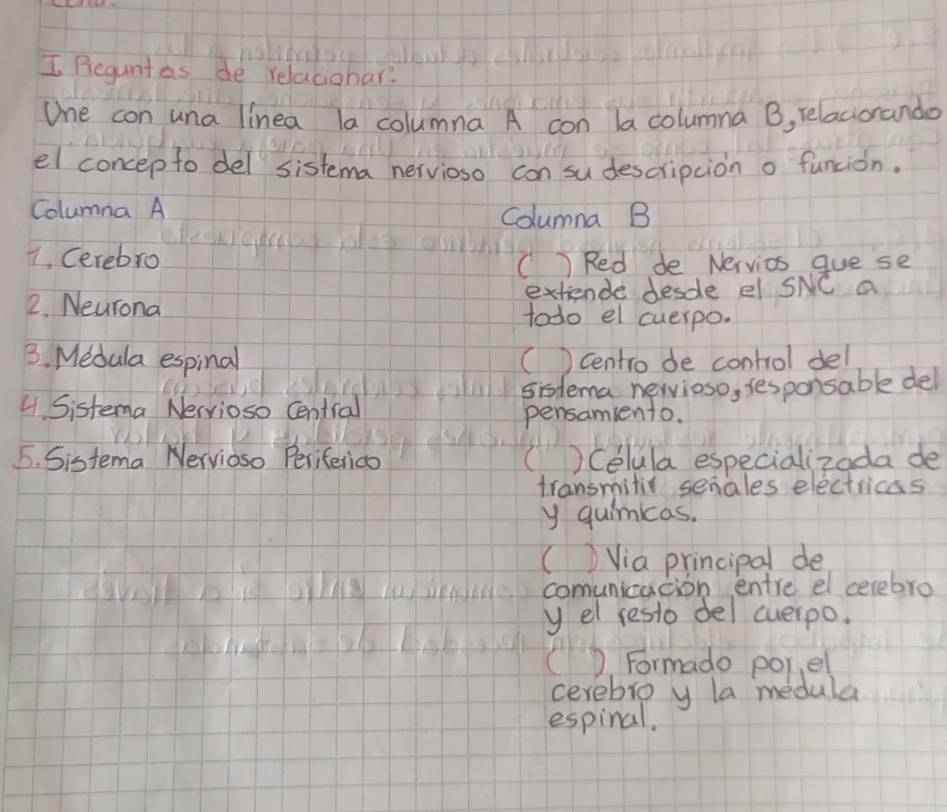 I Preguntas de relacionar:
Une con una línea la columna A con la columna B, relacionando
el concepto del sistema nervioso con su descripción o función.
Columna A
Columna B
1. Cerebro
2. Neurona
3. Médula espinal
4. Sistema Nervioso Central
5. Sistema Nervioso Periferico
( ) Red de Nervios que se
extiende desde el SNC a
todo el cuerpo.
( ) centro de control del
sistema nervioso, responsable del
pensamiento.
( ) Célula especializada de
transmitir señales eléctricas
y químicas.
( ) Via principal de
comunicación entre el cerebro
y el resto del cuerpo.
( ) Formado por el
cerebro y la médula
espinal.